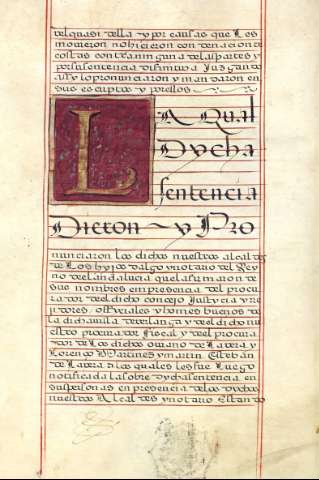 del quasi della y por causas que les
movieron no hicieron condenacion de
costas contra ninguna de las partes y
por su sentencia difinitiva Juzgando
assy lo pronunciaron y mandaron en
sus escriptos y por ellos
LA Qual
Dycha
sentencia
Dieron y Pro
nunciaron los dichos nuestros alcaldes
de los hijos dalgo y notario del Rey
no del andalucia que la firmaron de
sus nombres en presencia del procu
rador del dicho concejo Justycia y re
jidores officiales y homes buenos de
la dicha villa de y del dicho nu
estro procurador fiscal y del procura
dor de los dichos de Lahera y
Lorenço Martines y martin Esteban
de Lahera a los quales les fue luego
notificada la sobre dycha sentencia en
sus personas en presencia de los dychos
nuestros Alcaldes y notario Estando